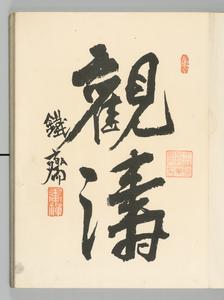 觀濤
鐵齋